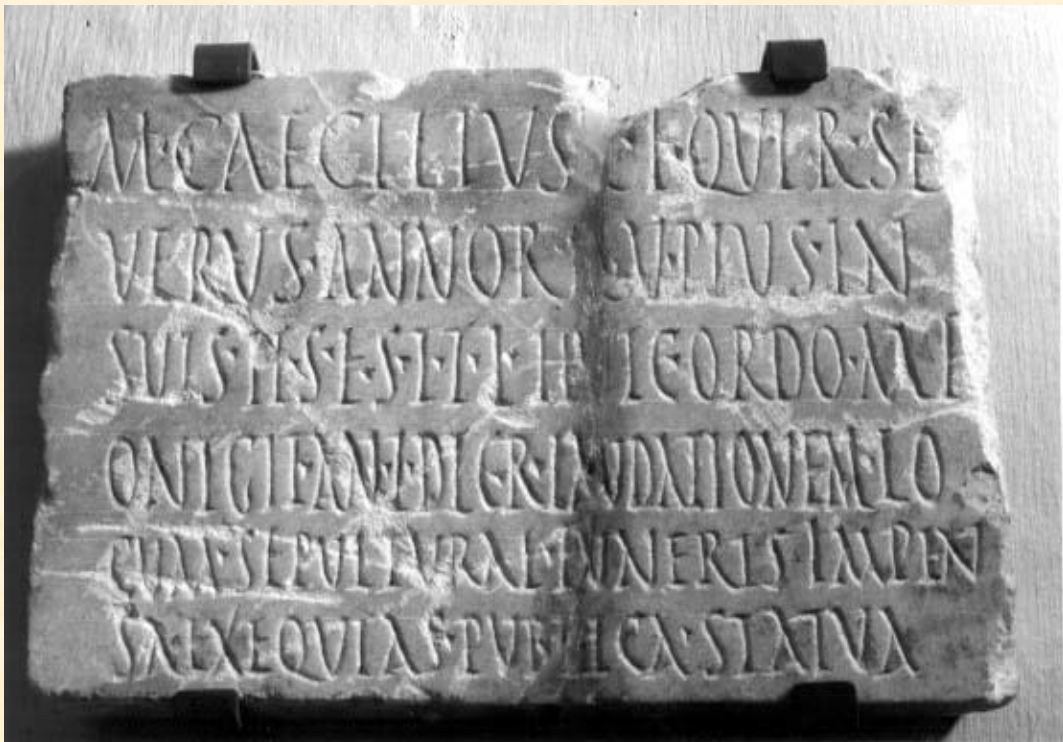 M·CAECILIVS · QVIR·SE
VERVS·ANNOR LV·PIVS·IN
SVIS·H·S·E·S·T·T·L· ORDO
LAVDATIONEM·LO
CVM·SEPVLTVRAE·FVNERIS·IMPEN
SA·EXEQVIAS·PVBLICA·STATVA